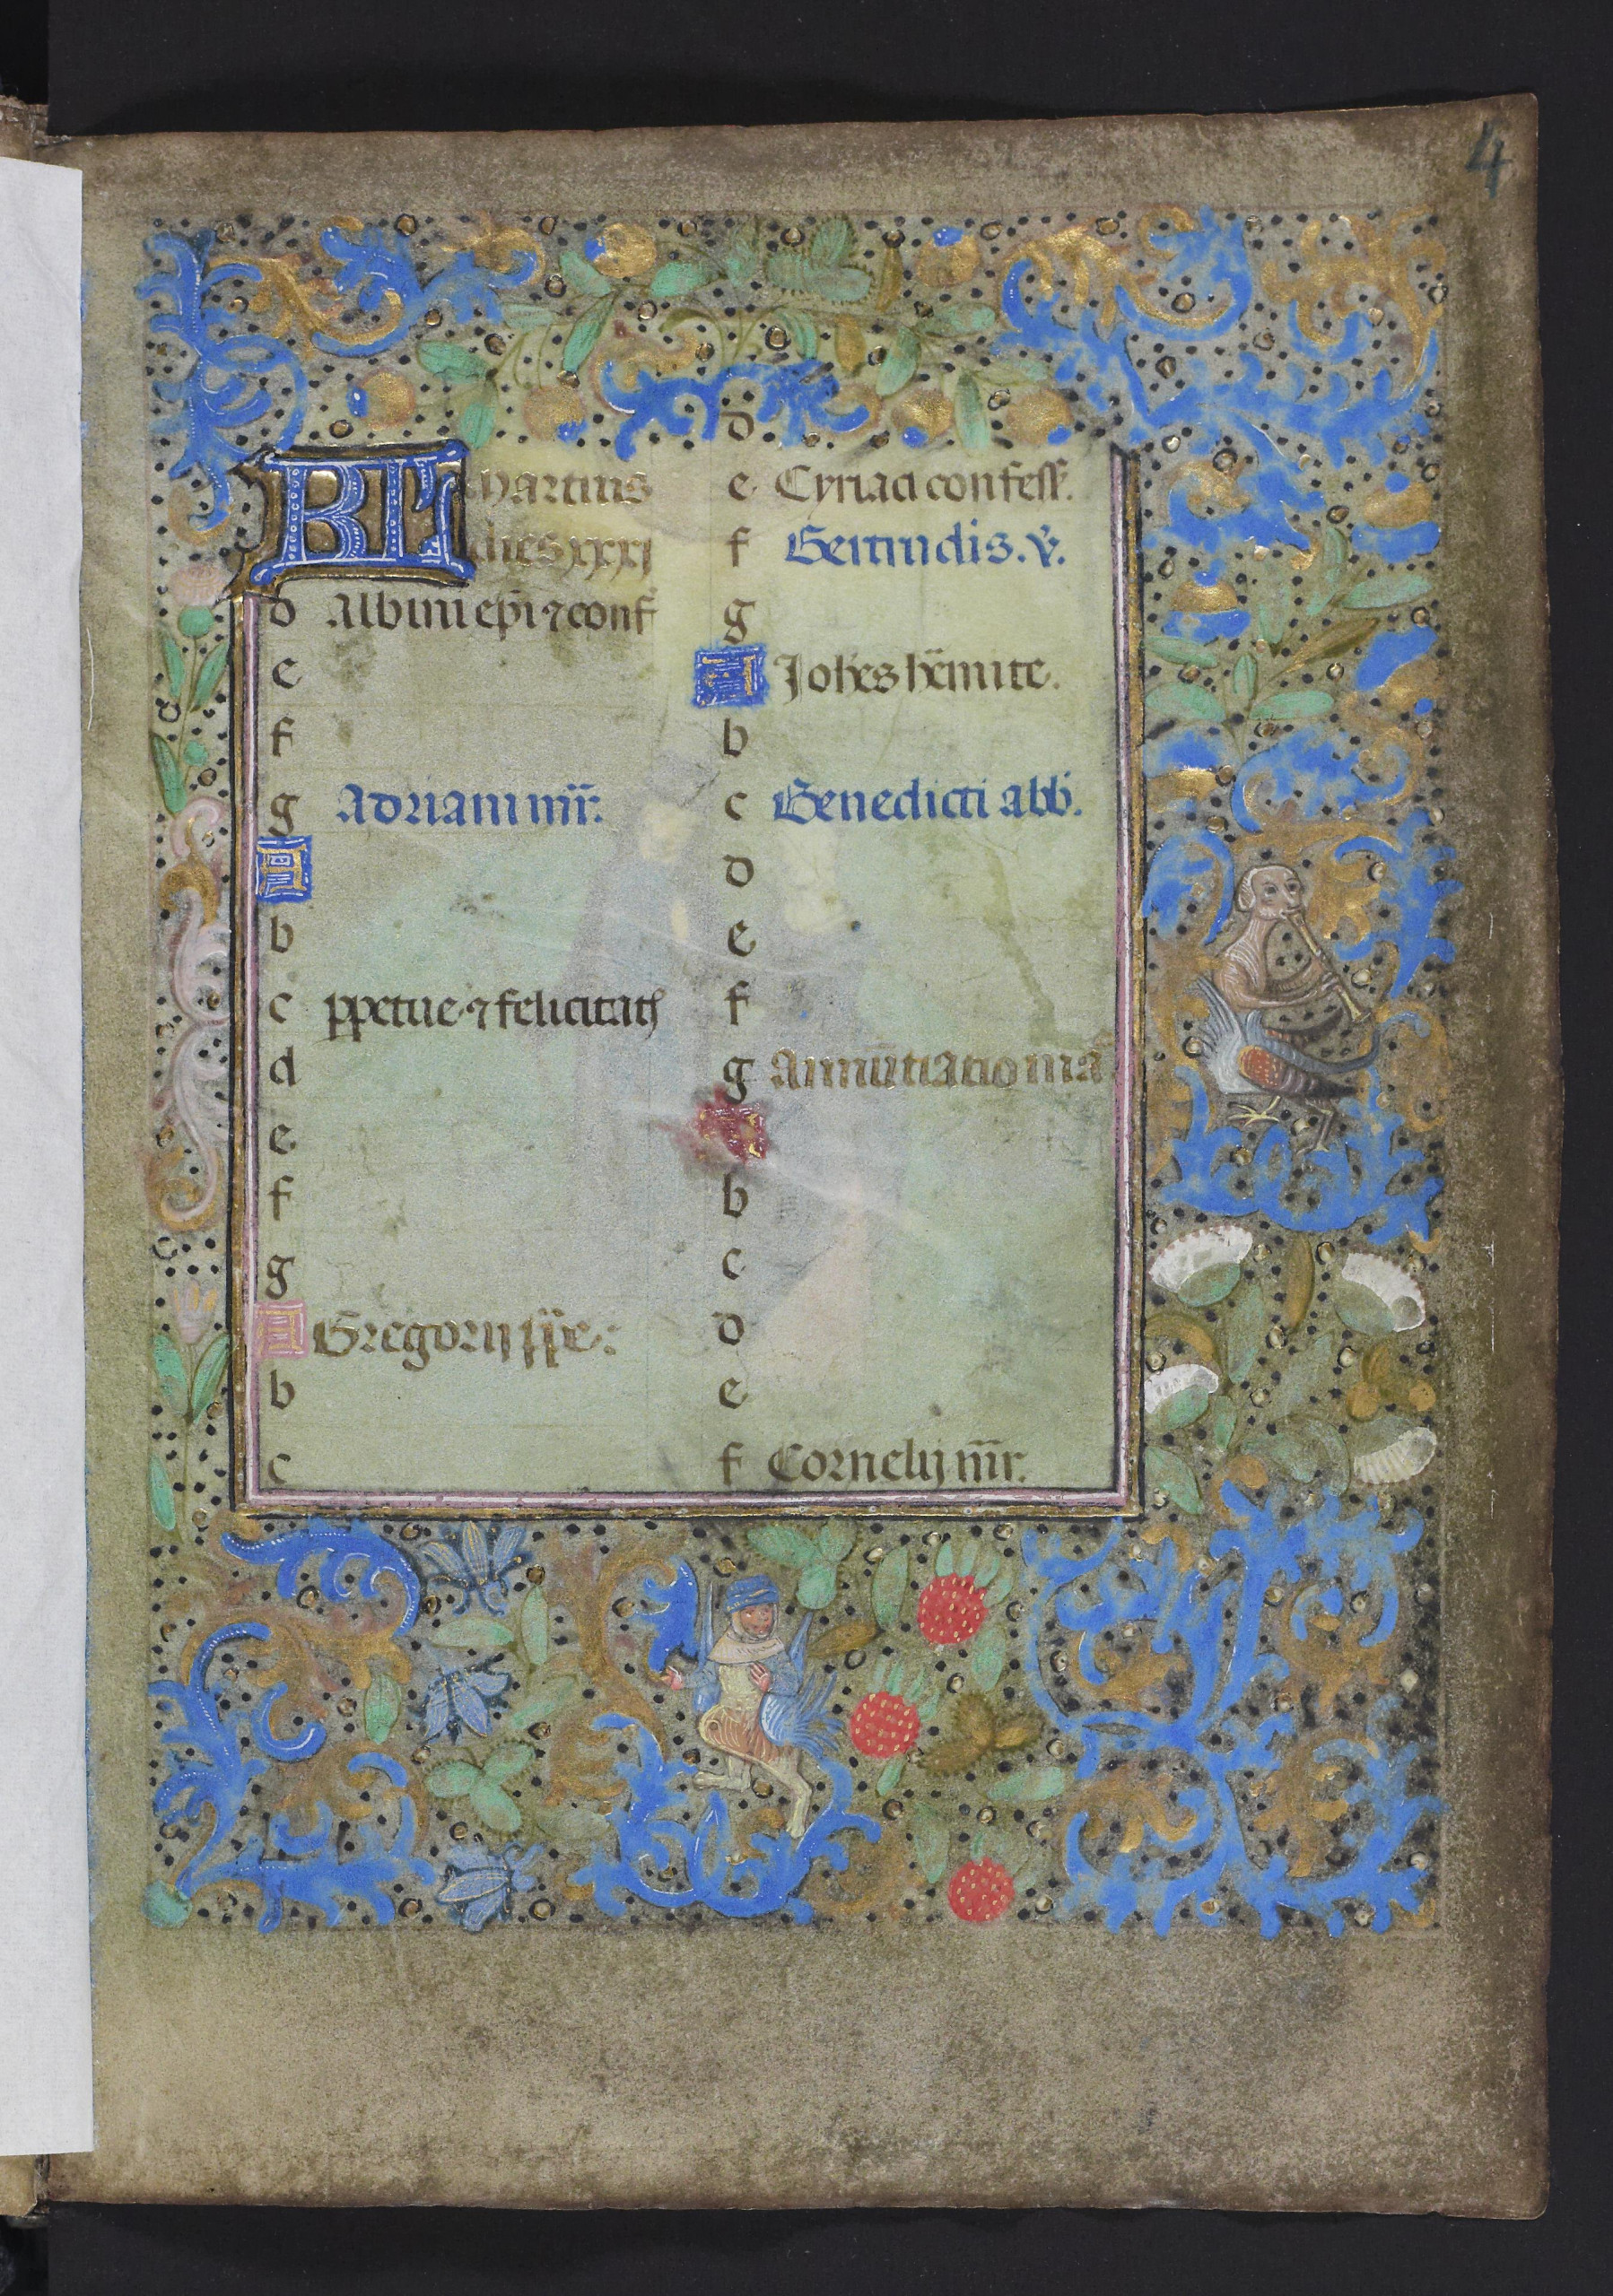 4
KL Martius
dies xxxi
d Albini ep̄i ⁊ conf̄
e
f
g Adriani mr̄:
A
b
c ꝑpetue ⁊ felicitatꝭ
d
e
f
g
A Gregorii ꝑ̄e:
b
c
d
e Cyriaci confess̄.
f Gertrudis. v̄.
g
A Joh̄es h̄emite.
b
c Benedicti abb̄.
d
e
f
g Annūtiatio mā
A
b
c
d
e
f Cornelij mr̄.